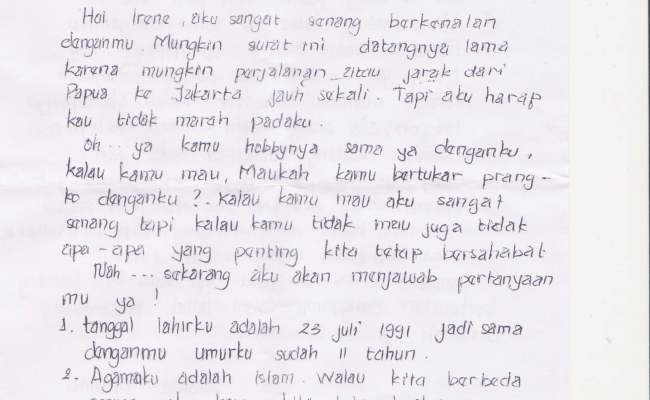 Hai Irene, aku sangat senang berkenalan
denganmu. Mungkin surat ini datangnya lama
karena mungkin perjalanan atau jarak dari
Papua ke Jakarta jauh sekali. Tapi aku harap
kau tidak marah padaku.
Oh.. ya kamu hobbynya sama ya denganku,
kalau kamu mau, Maukah kamu bertukar prang-
ko denganku ?. Kalau kamu mau aku sangat
senang tapi kalau kamu tidak mau juga tidak
apa-apa yang penting kita tetap bersahabat
Nah ... sekarang aku akan menjawab pertanyaan
mu ya !
1. tanggal lahirku adalah 23 juli 1991 jadi sama
denganmu umurku sudah 11 tahun.
2. Agamaku adalah islam. Walau kita berbeda